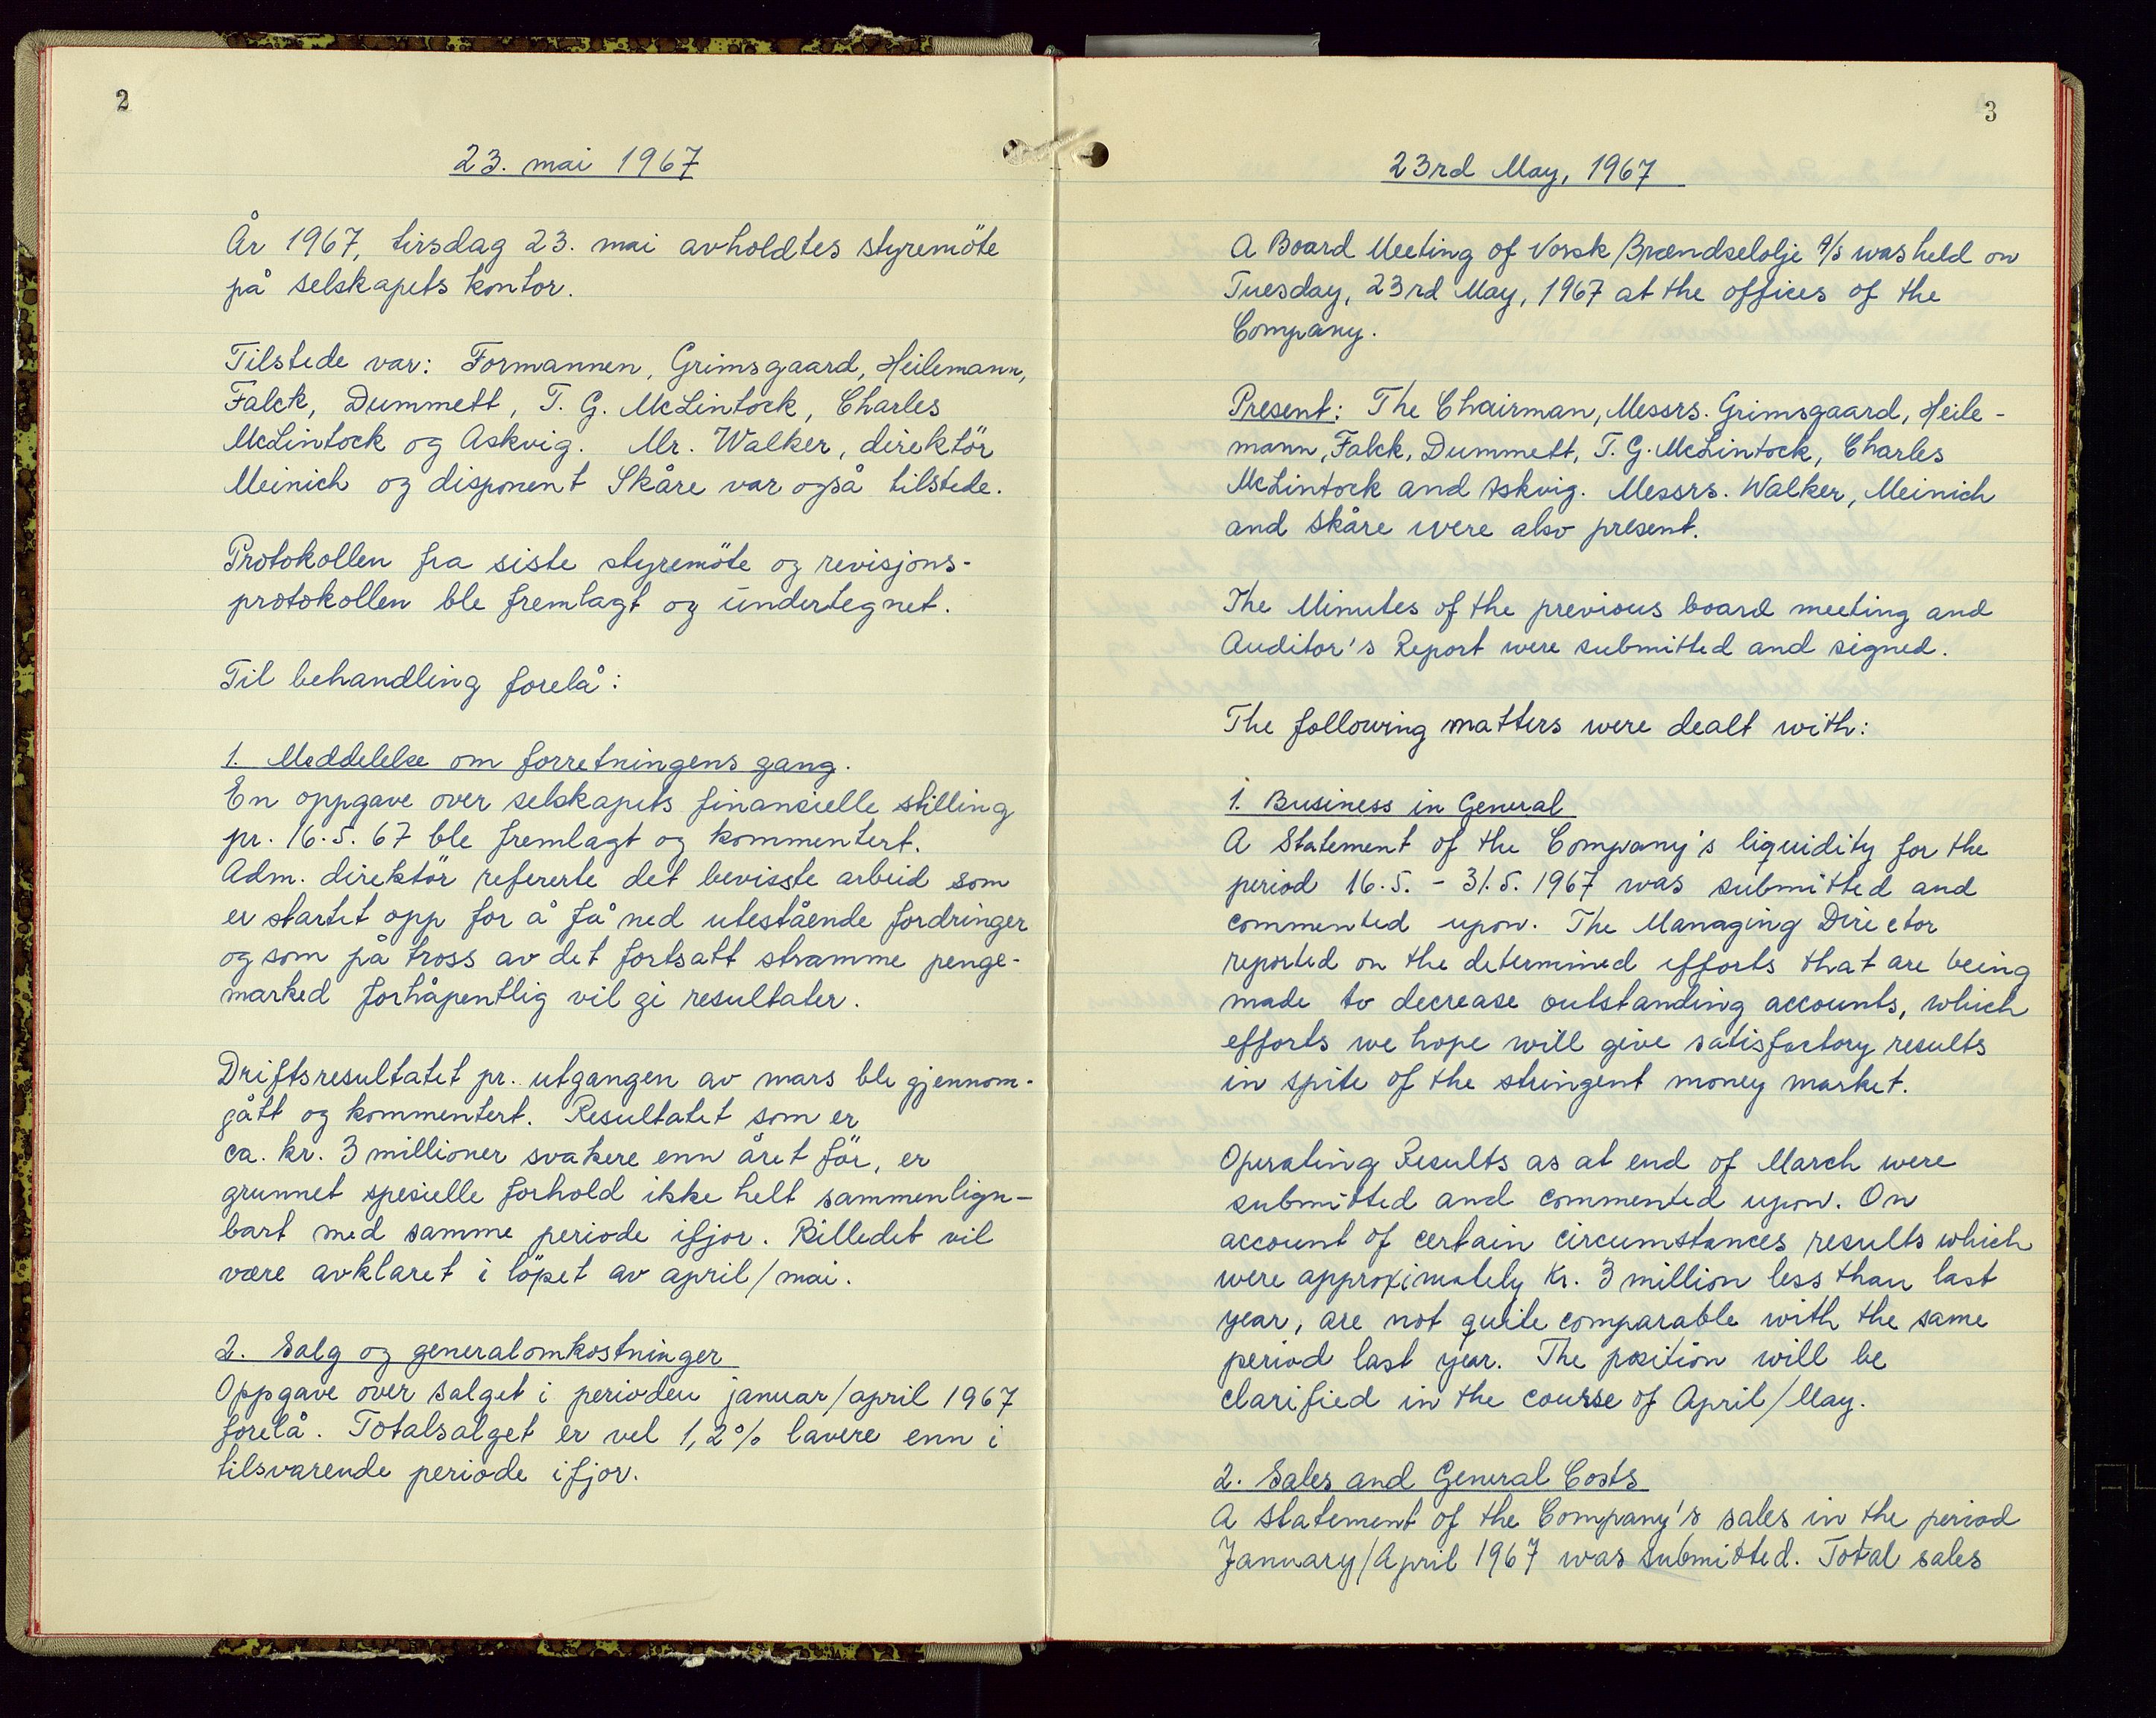 2
23. mai 1967
År 1967, tirsdag 23. mai avholdtes styremöte
på selskapets kontor.
Tilstede var: Formannen, Grimsgaard, Heilemann,
Falck, Dummett, T. G. McLintock, Charles
McLintock og Askvig. Mr. Walker, direktör
Meinich og disponent Skåre var også tilstede.
Protokollen fra siste styremöte og revisjons-
protokollen ble fremlagt og undertegnet.
Til behandling forelå:
1. Meddelelse om forretningens gang.
En oppgave over selskapets finansielle stilling
pr. 16.5.67 ble fremlagt og kommentert.
Adm. direktör refererte det bevisste arbeid som
er startet opp for å få ned utestående fordringer
og som på tross av det fortsatt stramme penge-
marked forhåpentlig vil gi resultater.
Driftsresultatet pr. utgangen av mars ble gjennom-
gått og kommentert. Resultatet som er
ca. kr. 3 millioner svakere enn året för, er
grunnet spesielle forhold ikke helt sammenlign-
bart med samme periode ifjor. Billedet vil
være avklaret i löpet av april/mai.
2. Salg og generalomkostninger
Oppgave over salget i perioden januar/april 1967
forelå. Totalsalget er vel 1,2% lavere enn i
tilsvarende periode ifjor.
3
23rd May, 1967
A Board Meeting of Norsk Brændselolje A/S was held on
Tuesday, 23rd May, 1967 at the offices of the
Company.
Present: The Chairman, Messrs. Grimsgaard, Heile-
mann, Falck, Dummett, T. G. McLintock, Charles
McLintock and Askvig. Messrs. Walker, Meinich
and Skåre were also present.
The Minutes of the previous board meeting and
Auditor's Report were submitted and signed.
The following matters were dealt with:
1. Business in General
A Statement of the Company's liquidity for the
period 16.5. - 31.5. 1967 was submitted and
commented upon. The Managing Director
reported on the determined efforts that are being
made to decrease outstanding accounts, which
efforts we hope will give satisfactory results
in spite of the stringent money market.
Operating Results as at end of March were
submitted and commented upon. On
account of certain circumstances results which
were approximately Kr. 3 million less than last
year, are not quite comparable with the same
period last year. The position will be
clarified in the course of April/May.
2. Sales and General Costs
A statement of the Company's sales in the period
January/April 1967 was submitted. Total sales